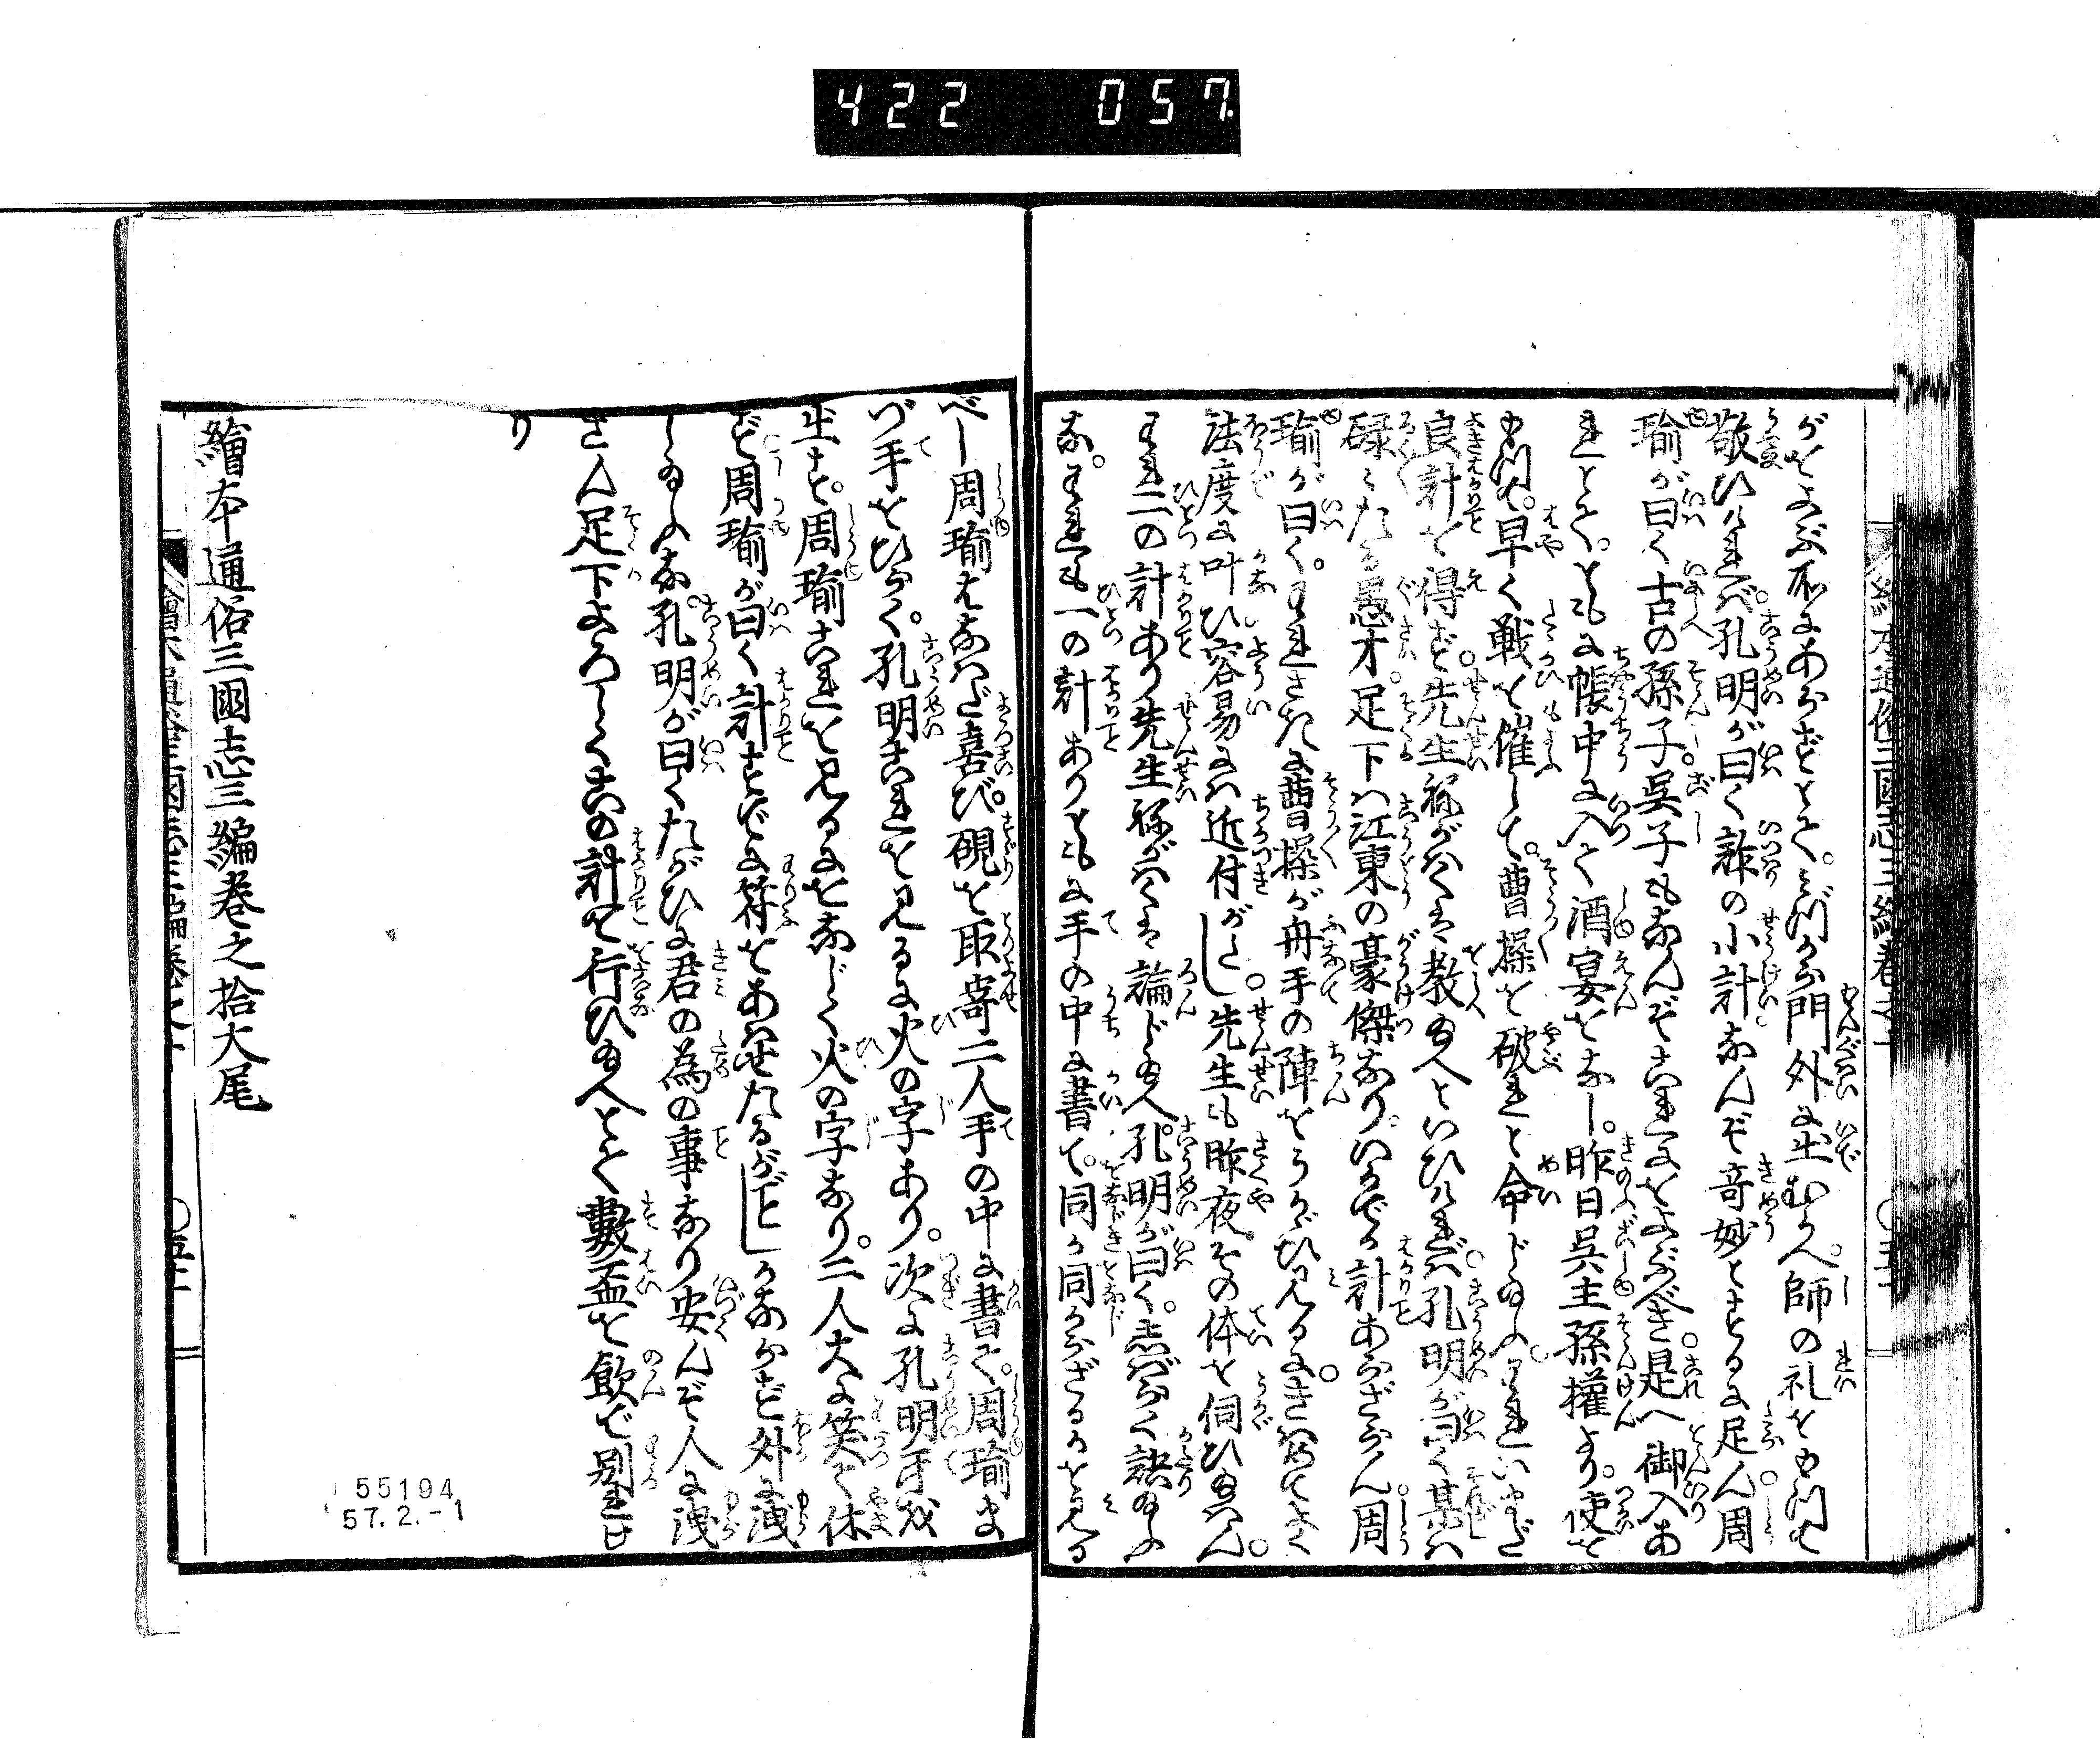 422 057.
がをよぶ所にあらずとて。みづから門外に出むかへ。師の礼をもつて
敬ひければ。孔明が曰く詐の小計なんぞ奇妙とするに足ん。周
瑜が曰く古の孫子呉子もなんぞこれにをよぶべき。是へ御入あ
れとて。ともに帳中に入て酒宴をなし。昨日呉主孫權より。使を
もつて。早く戦を催して。曹操を破れと命じ給ふ。われいまだ
良計を得ず。先生ねがはくは教給へといひければ。孔明が曰く某ハ
碌〻たる愚才。足下ハ江東の豪傑なり。いかでか計あらざらん。周
瑜が曰く。われさきに曹操が舟手の陣をうかゞひ見るに。きはめてよく
法度に叶ひ容易にハ近付がたし。先生も昨夜。その体を伺ひ給はん。
われ一の計あり先生ねがはくは論じ給へ。孔明が曰く。しばらく説給ふ
な。われも一の計ありともに手の中に書て。同か同からざるかを見る
べし周瑜はなはだ喜び。硯を取寄二人手の中に書て。周瑜ま
づ手をひらく。孔明これを見るに火の字あり。次に孔明手を
出すを。周瑜これを見るにをなじく火の字なり。二人大に笑て休
ず周瑜が曰く計すでに符をあはせたるがごとしかならず外に洩
し給ふな。孔明が曰くたがひに君の為の事なり安んぞ人に洩
さん足下よろしくこの計を行ひ給へとて數盃を飲で別れけ
り
繪本通俗三國志三編巻之拾大尾
55194
57.2.-1